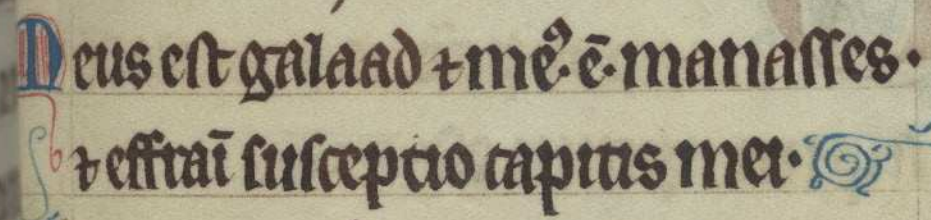 Meus est galaad ⁊ meꝰ· ē· manasses·
⁊ effraī susceptio capitis mei·